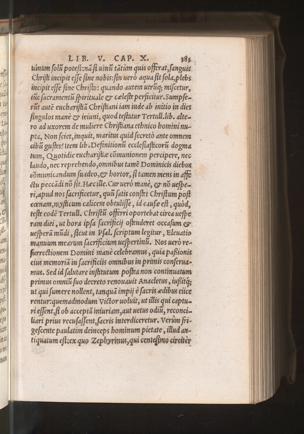 LIB. V. CAP. X. 383
uinum solũ potest: nã si uinũ tãtùm quis offerat, sanguis
Christi incipit esse sine nobis: sin verò aqua sit sola, plebs
incipit esse sine Christo: quando autem utrũq; miscetur,
tũc sacramentũ spirituale & cæleste perficitur. Sumpse-
rũt autẽ eucharistiã Christiani iam inde ab initio in dies
singulos manè & ieiuni, quod testatur Tertull. lib. alte-
ro ad uxorem de muliere Christiana ethnico homini nu-
pta, Non sciet, inquit, maritus quid secretò ante omnem
cibũ gustes? Item lib. Definitionũ ecclesiasticorũ dogma
tum, Quotidie eucharistiæ cõmunionem percipere, nec
laudo, nec reprehendo, omnibus tamẽ Dominicis diebus
cõmunicandum suadeo, & hortor, si tamen mens in affe
ctu peccãdi nõ sit. Hæc ille. Cur uerò manè, & nõ uespe-
ri, apud nos sacrificetur, quũ satis constet Christum post
cœnam, mysticum calicem obtulisse, id causæ est, quòd,
teste eodẽ Tertull. Christũ offerri oportebat circa uespe
ram diei, ut hora ipsa sacrificij ostenderet occasum &
uesperã mũdi, sicut in Psal. scriptum legitur, Eleuatio
manuum mearum sacrificium uespertinũ. Nos uerò re-
surrectionem Domini manè celebramus, quia passionis
eius memoriã in sacrificijs omnibus in primis conserua-
mus. Sed id salutare institutum postea non continuatum
primus omniũ suo decreto renouauit Anacletus, iussitq;
ut qui sumere nollent, tanquã impij è sacris ædibus eiice
rentur: quemadmodum Victor uoluit, ut illis qui captu-
ri essent, si ob acceptã iniuriam, aut uetus odiũ, reconci-
liari prius recusassent, sacris interdiceretur. Verùm fri-
gescente paulatim deinceps hominum pietate, illud an-
tiquatum est: ex quo Zephyrinus, qui centesimo circiter